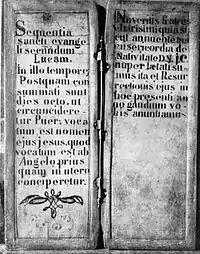 Sequentia
sancti evange
li secundum
Lucam.
In illo tempore,
Postquam con
summati sunt
dies octo, ut
circuncidere-
tur Puer; voca
tum est nomen
ejus jesus, quod
vocatum est ab
Angelo prius
quam in utero
conciperetur.
Noveritis fratres
charissimi quia si
cut annuente Dei
misericordia de
Nativitate D.N.J.C.
nuper lætati su
mus ita et Resur
rectionis ejus in
hoc presenti an
no gaudium vo
bis anuntiamu